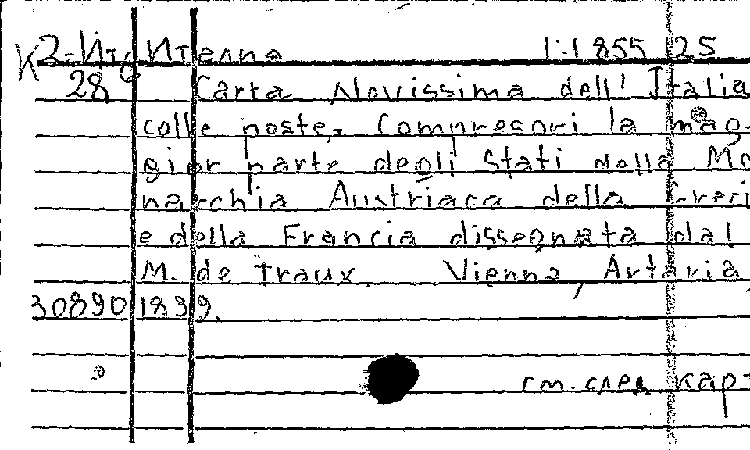 К2-Ито Италия 1:1 855 25
28 Carta Novissima dell' Italia
colle poste. Compresori la mag-
gior parte degli Stati della Mo
narchia Austriaca della Greci
e della Francia dissegnata dal
M. de Traux. Vienna, Artaria,
30890 1839.
см. след карт